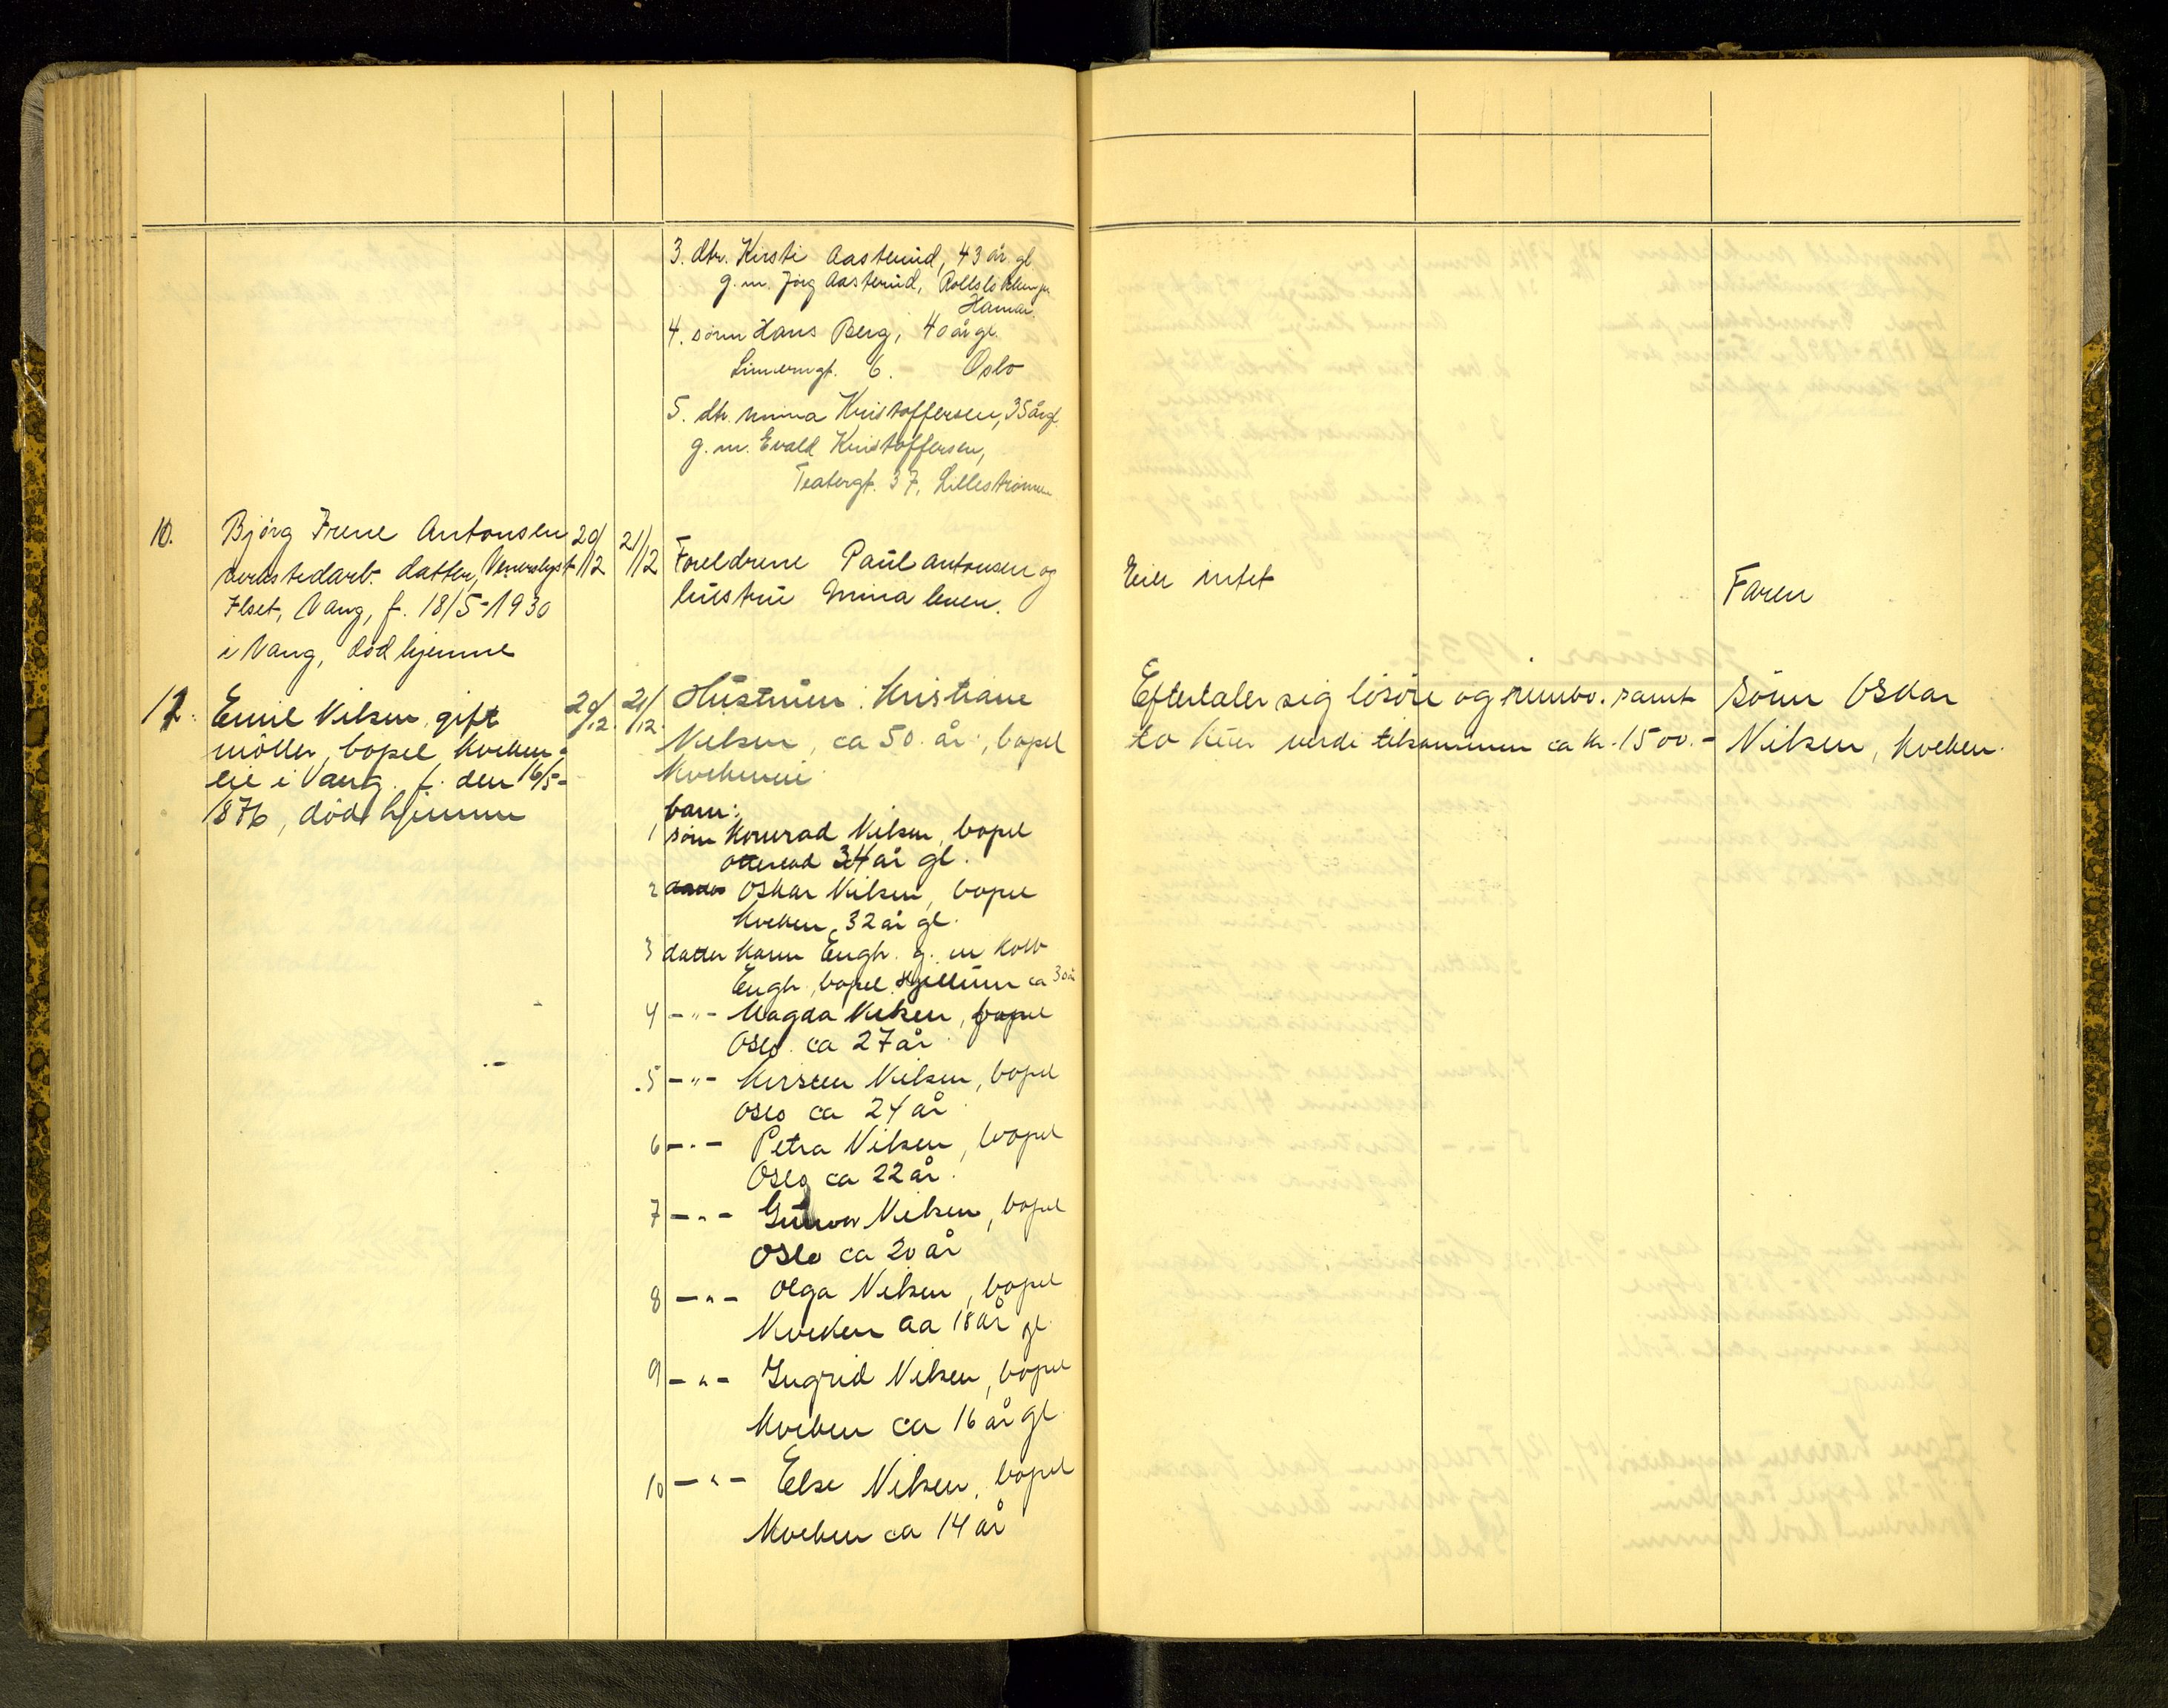 3. dtr. Kirsti Aasterud, 43 år gl
g.m. Jörg Aasterud, Rollsløkken pr
Hamar.
4. sönn Hans Berg, 40 år gl.
6. Oslo
5. dtr. Minna Kristoffersen, 35 år gl.
g.m. Evald Kristoffersen,
Teatergt. 37, Lilleströmm
10.
Bjørg Irene Antonsen
verkstedarb. datter, Venerslyst
Ilset, Vang, f. 18/5-1930
i Vang, död hjemme
20/12
21/12
Foreldrene Paul Antonsen og
hustru Minna leven.
Eier intet
Faren
11.
Emil Nilsen, gift
möller, bopel Kveken
eie i Vang. f. den 16/5-
1876, död hjemme
20/12.
21/12.
Hustruen: Kristiane
Nilsen, ca 50. år, bopel
barn:
1 sönn Konrad Nilsen, bopel
Ottestad 34 år gl.
2 Oskar Nilsen, bopel
Kveken, 32 år gl.
3 datter Karen Engh. g. m
Engh, bopel Hjellum ca 30 år
4 -"- Magda Nilsen, bopel
Oslo. ca 27 år
5 -"- Kirsten Nilsen, bopel
Oslo ca 24 år
6 -"- Petra Nilsen, bopel
Oslo ca 22 år.
7 -"- Gunvor Nilsen, bopel
Oslo ca 20 år
8 -"- Olga Nilsen, bopel
Kveken ca 18 år gl.
9 -"- Ingrid Nilsen, bopel
Kveken ca 16 år gl.
10 -"- Else Nilsen, bopel
Kveken ca 14 år
Efterlater sig lösöre og innbo. samt
to kuer verdi tilsammen ca kr. 1500.-
sönn Oskar
Nilsen, Kveken.